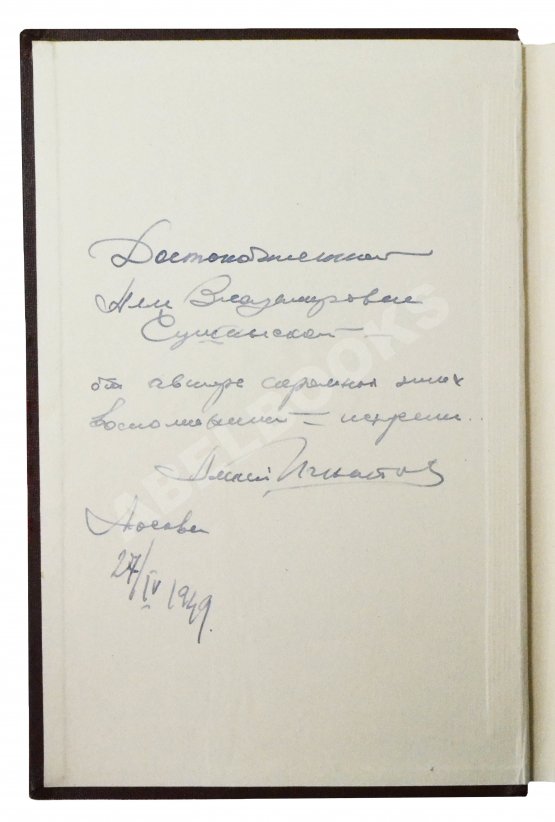 Достоуважаемой
Владимировне
Сушанской —
от автора скромных этих
воспоминаний — искренне..
Алексей Игнатьев
Москва
27/IV 1949.
ABELBOOKS